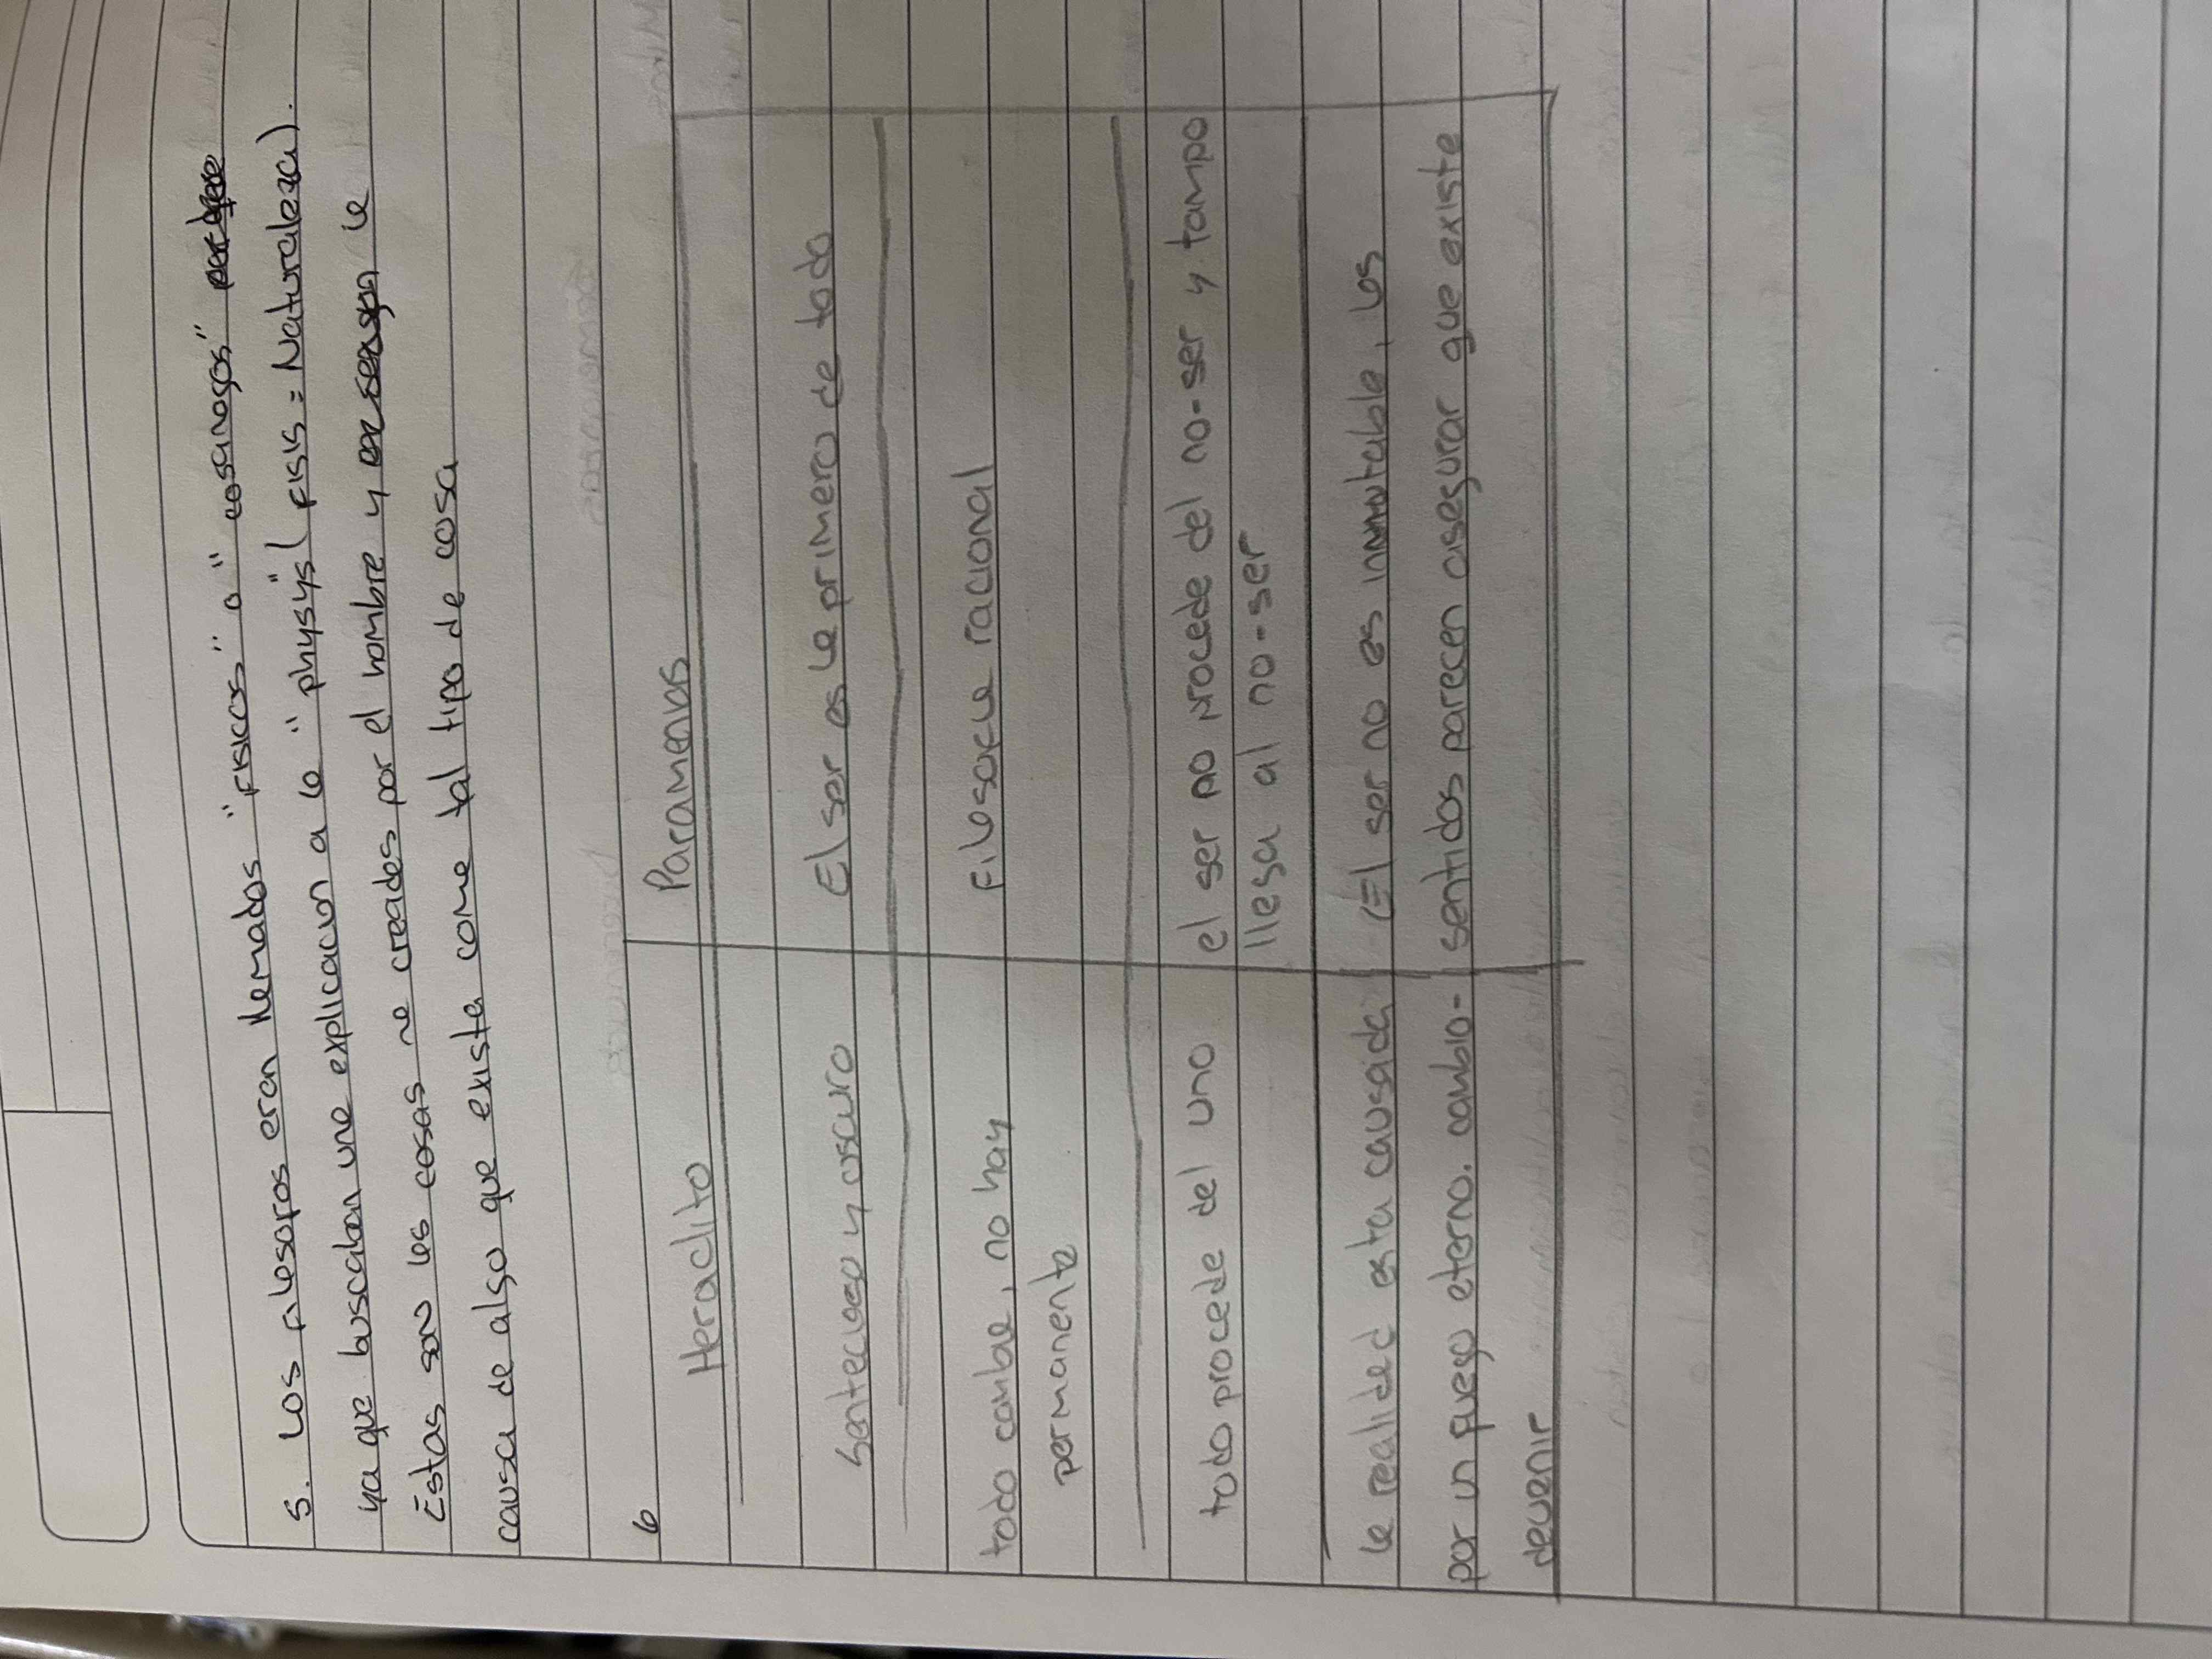 5. Los filosofos eran llamados "fisicos" o "cosmologos"
ya que buscaban una explicacion a la "physys" (Fisis = Naturaleza).
Estas son las cosas no creadas por el hombre y la
causa de algo que exista como tal tipo de cosa
6
Heraclito Paramenas
Sentecioso y oscuro El ser es lo primero de todo
todo cambia, no hay Filosofia racional
permanente
todo procede del uno el ser no procede del no-ser y tampo
llega al no-ser
la realidad esta causada (El ser no es inmutable, los
por un fuego eterno. cambio- sentidos parecen asegurar que existe
devenir